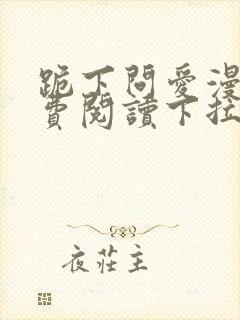 跪下問愛漫
費閱讀下拉
夜莊主